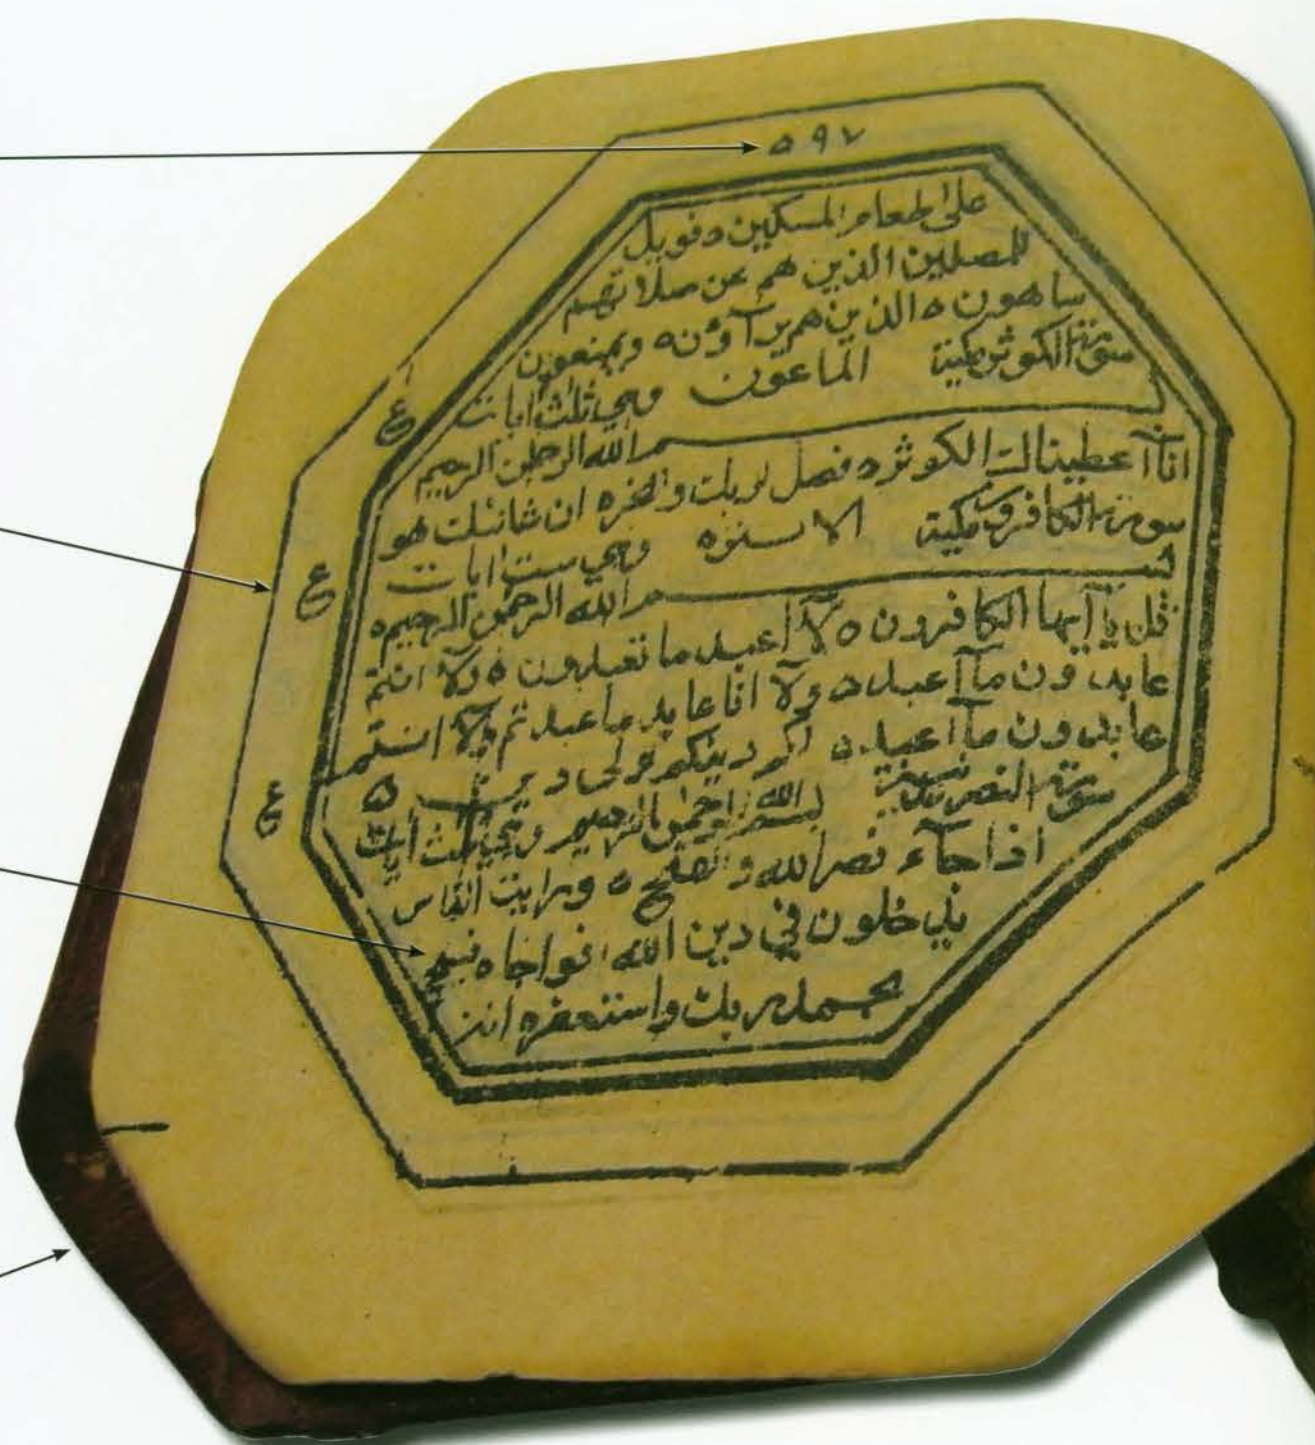 ٥٩٧
على طعام المسكين ه فويل
للمصلين الذين هم عن صلاتهم
ساهون ه الذين هم يرآؤن ه ويمنعون
سورة الكوثر مكية الماعون وهي ثلث ايات
ع
بسم الله الرحمن الرحيم
انآ اعطيناك الكوثر ه فصل لربك وانحره ان شانئك هو
سورة الكافرون مكية الابتره وهي ست ايات
ع
بسم الله الرحمن الرحيمه
قل يآ ايها الكافرون ه لآ اعبد ما تعبدون ه ولآ انتم
عابدون مآ اعبد ه ولآ انا عابد ما عبدتم ولآ انتم
عابدون مآ اعبد ه لكم دينكم ولى دين ه
ع
سورة النصر بسم الله الرحمن الرحيم وهي ثلث ايات
اذا جآء نصر الله والفتح ه ورايت الناس
يدخلون في دين الله افواجا ه فسبح
بحمد ربك واستغفره انه